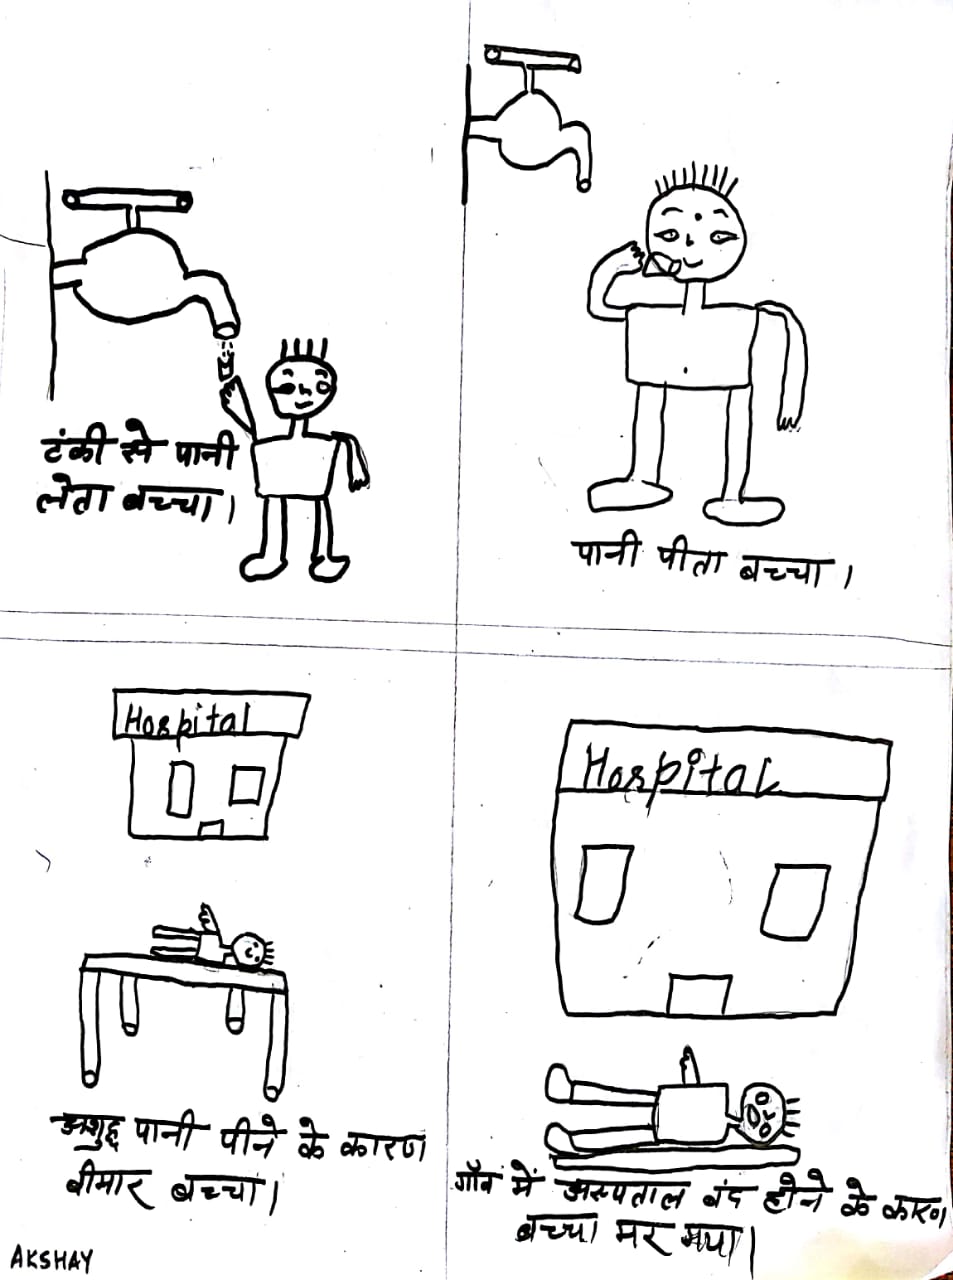 टंकी से पानी
लेता बच्चा।
पानी पीता बच्चा।
Hospital
अशुद्ध पानी पीने के कारण
बीमार बच्चा।
Hospital
गाँव में अस्पताल बंद होने के कारण
बच्चा मर गया।
AKSHAY